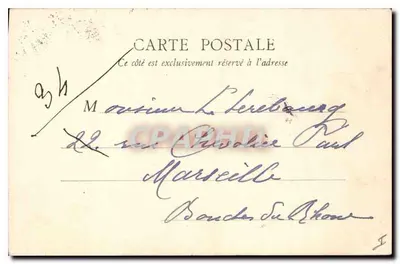 CARTE POSTALE
Ce côté est exclusivement réservé à l'adresse
34
Monsieur L.
22 rue Chevalier Paul
Marseille
Bouches du Rhône
I